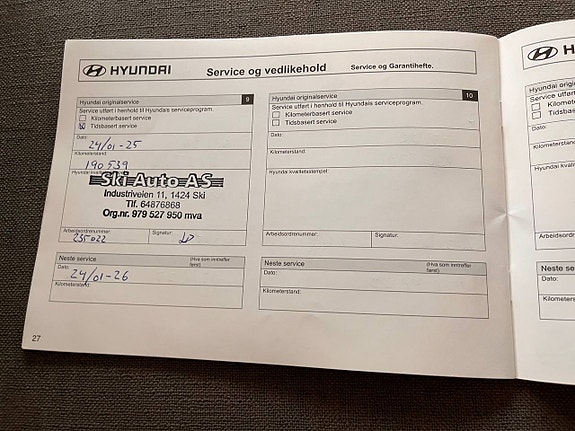 HYUNDAI
Service og vedlikehold
Service og Garantihefte.
Hyundai originalservice 9
Service utført i henhold til Hyundais serviceprogram.
Kilometerbasert service
Tidsbasert service
Dato:
24/01-25
Kilometerstand:
190 539
Ski Auto AS
Industriveien 11, 1424 Ski
Tlf. 64876868
Org.nr. 979 527 950 mva
Arbeidsordrenummer: Signatur:
235022
Neste service (Hva som inntreffer først)
Dato:
24/01-26
Kilometerstand:
27
Hyundai originalservice 10
Service utført i henhold til Hyundais serviceprogram.
Kilometerbasert service
Tidsbasert service
Dato:
Kilometerstand:
Hyundai kvalitetsstempel
Arbeidsordrenummer: Signatur:
Neste service (Hva som inntreffer først)
Dato:
Kilometerstand:
HY
Hyundai original
Service utført
Kilometer
Tidsbaser
Dato:
Kilometerstand:
Hyundai kvalit
Arbeidsordrenu
Neste se
Dato:
Kilometerst